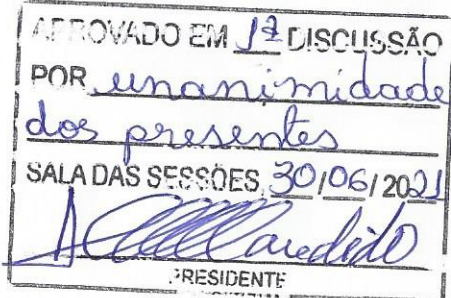 APROVADO EM 1ª DISCUSSÃO
POR unanimidade
dos presentes
SALA DAS SESSÕES, 30/06/2021
PRESIDENTE